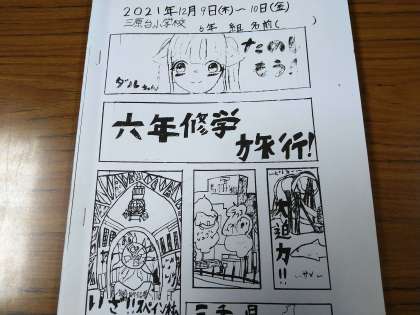 2021年12月9日(木)〜10日(金)
三原台小学校 6年 組 名前( )
たのしもう!
ダルちゃん
六年修学
旅行!
大迫力!!
いざ!!スペイン村
三重県